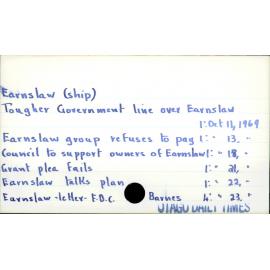 Earnslaw (ship)
Tougher Government line over Earnslaw
1: Oct 11, 1969
Earnslaw group refuses to pay 1: " 13, "
Council to support owners of Earnslaw 1: " 18, "
Grant plea fails 1: " 21, "
Earnslaw talks plan 1: " 22, "
Earnslaw - letter - F.D.C. Barnes 4: " 23, "
OTAGO DAILY TIMES